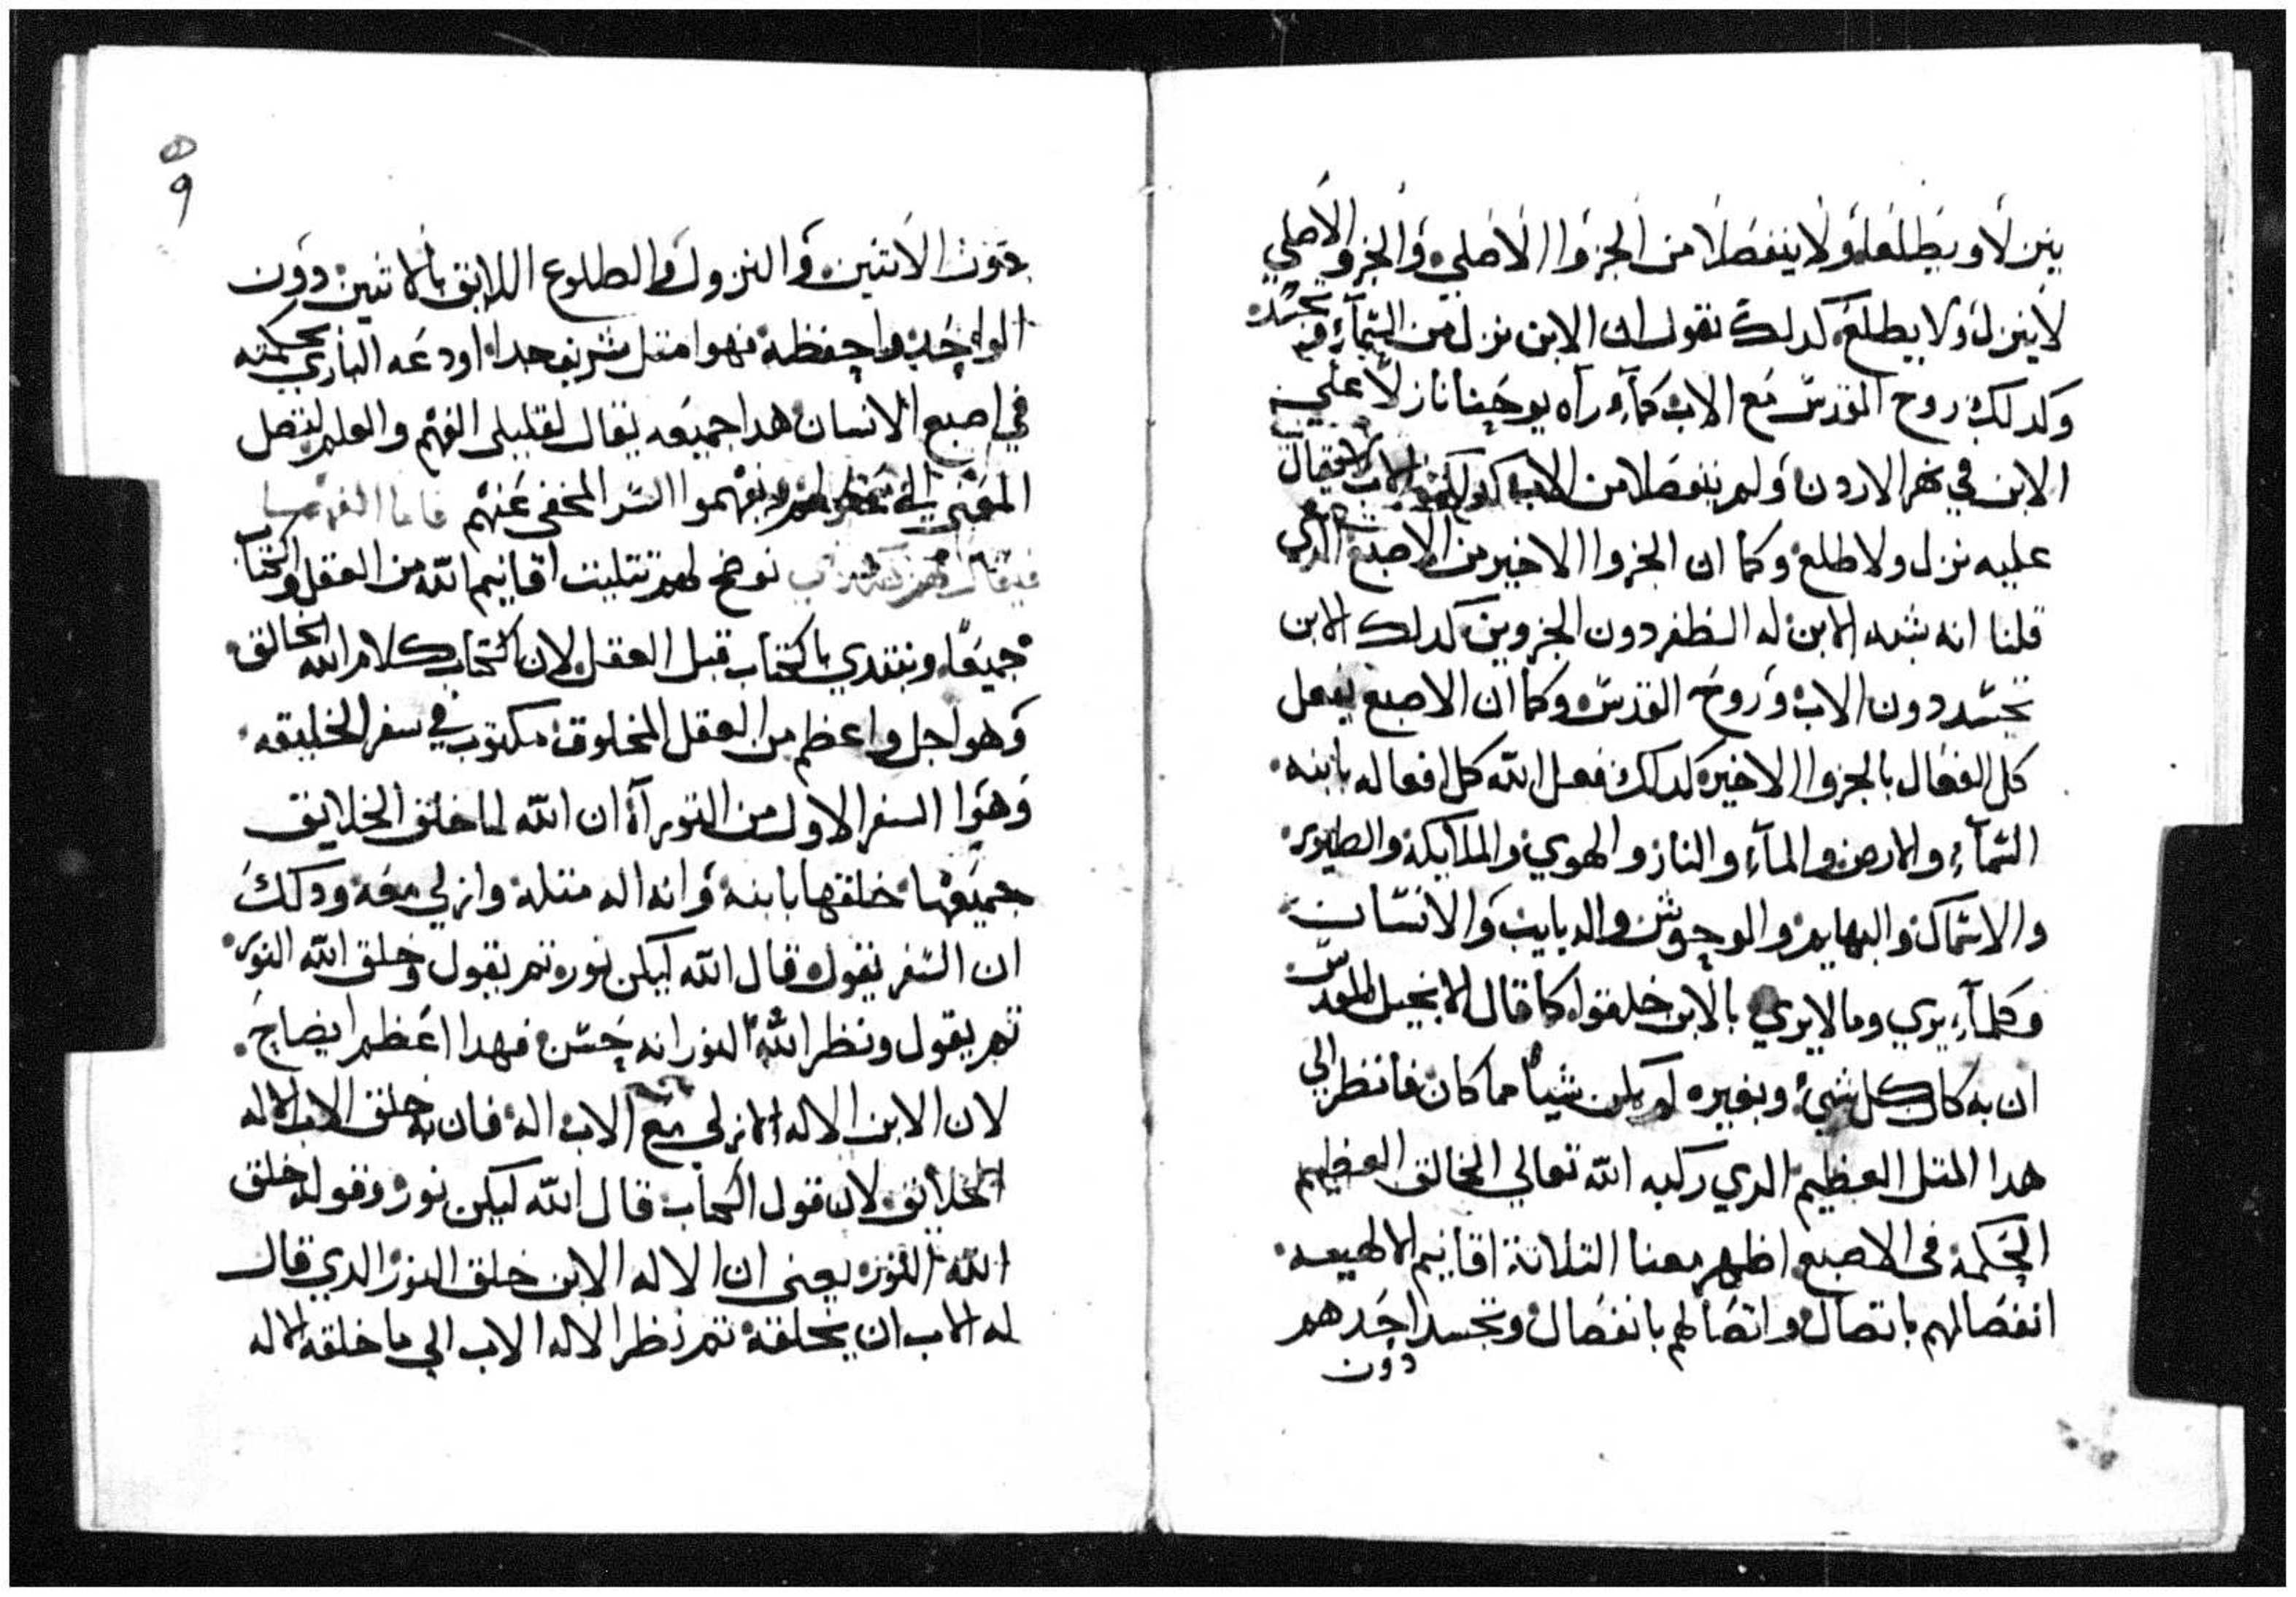 ينزلا ويطلعا ولا ينفصلا من الجزوا الاصلي والجزو الاصلي
لا ينزل ولا يطلع كدلك نقول ان الابن نزل من السمآء وتجسد
وكدلك روح القدس مع الاب كمآء راه يوحنا نازلا علي
الابن في نهر الاردن ولم ينفصلا من الاب
عليه نزل ولا طلع وكما ان الجزوا الاخير من الاصبع الدي
قلنا انه شبه الابن له الظفر دون الجزوين كدلك الابن
تجسد دون الاب وروح القدس وكما ان الاصبع يفعل
كل الفعال بالجزوا الاخير كدلك فعل الله كل افعاله بابنه
السمآء والارض والمآء والنار والهوي والملايكة والطيور
والاسماك والبهايم والوحوش والدبايب والانسان
وكلمآء يري وما لا يري بالابن خلقوا كما قال الانجيل المقدس
ان به كان كل شيء وبغيره لم يكن شياً مما كان فانظر الي
هدا المتل العظيم الدي ركبه الله تعالي الخالق العظيم
الحكمة في الاصبع اظهر معنا التلاتة اقانيم الالهيه
انفصالهم باتصال واتصالهم بانفصال وتجسد احدهم
دون
9
دون الاتنين والنزول والطلوع اللايق بالاتنين دون
الواحد واحفظه فهوا متل شريف جدا اودعه الباري بحكمته
في اصبع الانسان هدا جميعه يقال لقليلي الفهم والعلم لتصل
المعني الي يفهموا السر المخفي عنهم فاما الفهما
فيقال نوضح لهم تتليت اقانيم الله من العقل والكتاب
جميعًا ونبتدي بالكتاب قبل العقل لان الكتاب كلام الله الخالق
وهو اجل واعظم من العقل المخلوق مكتوب في سفر الخليقه
وهوا السفر الاول من التوراة ان الله لما خلق الخلايق
جميعها خلقها بابنه وانه اله متله وازلي معه ودلك
ان السفر يقول قال الله ليكن نور تم يقول وخلق الله النور
تم يقول ونظر الله النور انه حسن فهدا اعظم ايضاح
لان الابن الاله الازلي مع الاب اله فان به خلق الاب الاله
الخلايق لان قول الكتاب قال الله ليكن نور وقوله خلق
الله النور يعني ان الاله الابن خلق النور الدي قال
له الاب ان يخلقه تم نظر الاله الاب الي ما خلقه الاله